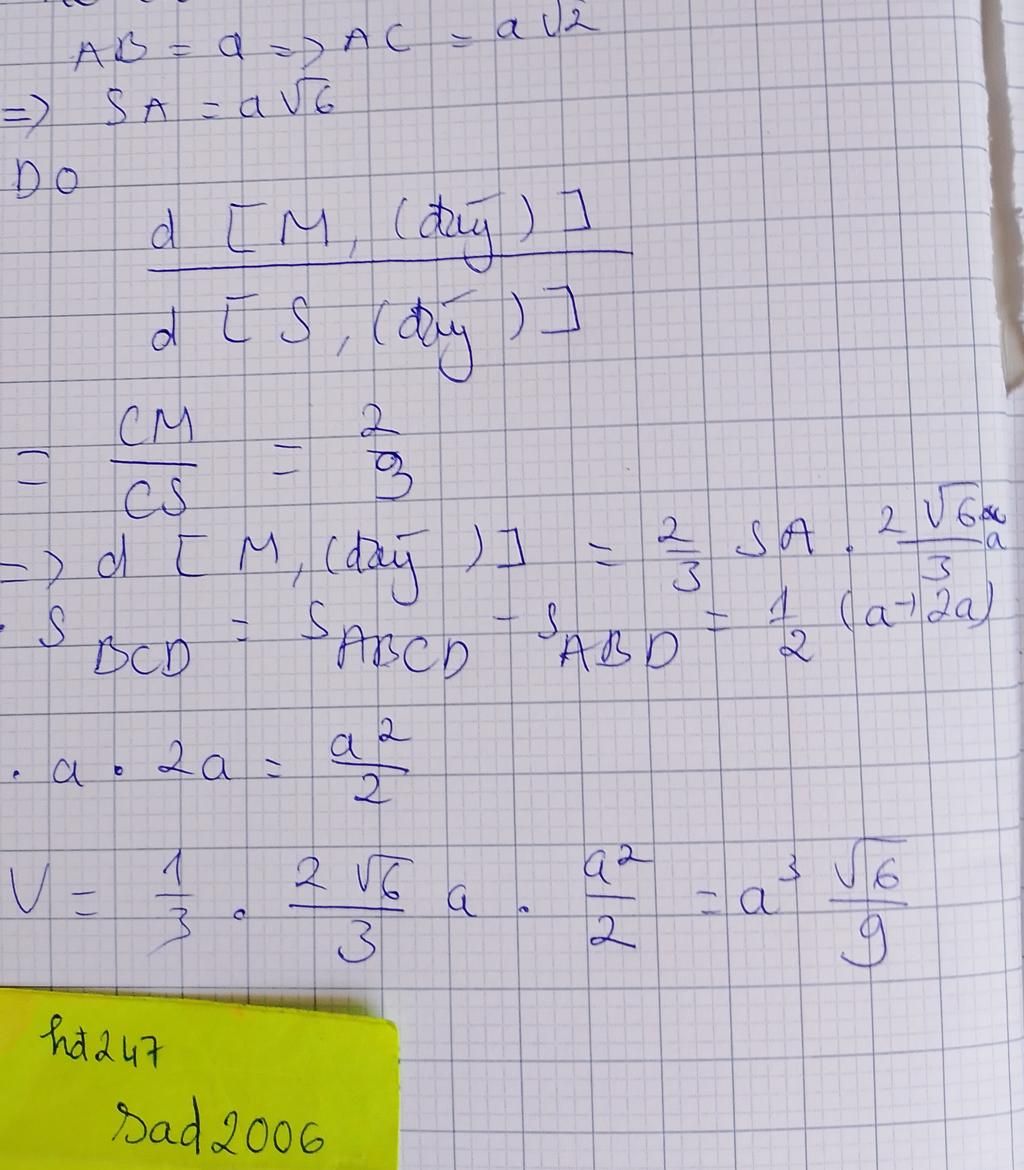 AB = a => AC = a√2
=> SA = a√6
DO
d [M, (đáy)]
d [S, (đáy)]
= CM/CS = 2/3
=> d [M, (đáy)] = 2/3 SA . 2√6/3 a
. S BCD = S ABCD - S ABD = 1/2 (a+2a)
. a . 2a = a²/2
V = 1/3 . 2√6/3 a . a²/2 = a³ √6/9
hd247
Sad2006